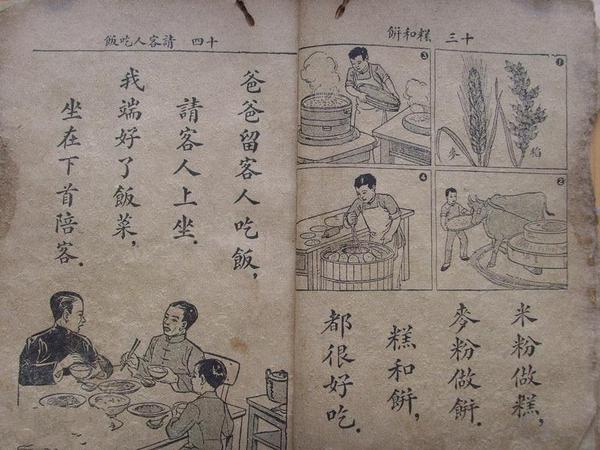 十三 糕和餅
❶
稻
麥
❷
❸
❹
米粉做糕，
麥粉做餅．
糕和餅，
都很好吃．
十四 請客人吃飯
爸爸留客人吃飯，
請客人上坐．
我端好了飯菜，
坐在下首陪客．